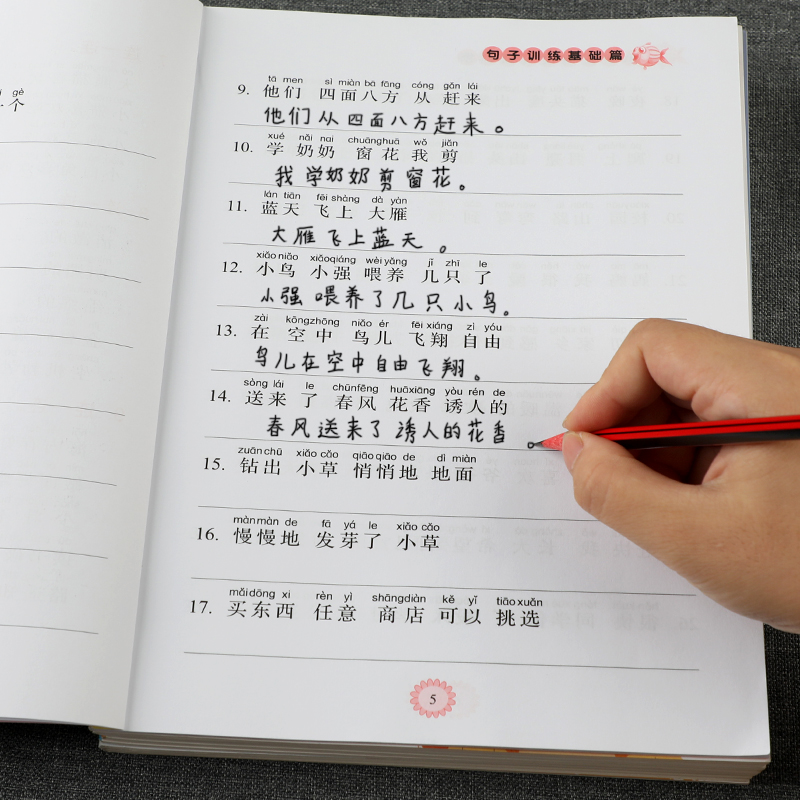 gè
个
句子训练基础篇
tā men sì miàn bā fāng cóng gǎn lái
9. 他们 四面八方 从 赶来
他们从四面八方赶来。
xué nǎi nai chuānghuā wǒ jiǎn
10. 学 奶奶 窗花 我 剪
我学奶奶剪窗花。
lán tiān fēi shàng dà yàn
11. 蓝天 飞上 大雁
大雁飞上蓝天。
xiǎo niǎo xiǎoqiáng wèi yǎng jǐ zhī le
12. 小鸟 小强 喂养 几只 了
小强喂养了几只小鸟。
zài kōngzhōng niǎo ér fēi xiáng zì yóu
13. 在 空中 鸟儿 飞翔 自由
鸟儿在空中自由飞翔。
sòng lái le chūnfēng huāxiāng yòu rén de
14. 送来 了 春风 花香 诱人的
春风送来了诱人的花香。
zuān chū xiǎo cǎo qiāo qiāo de dì miàn
15. 钻出 小草 悄悄地 地面
màn màn de fā yá le xiǎo cǎo
16. 慢慢地 发芽了 小草
mǎi dōng xi rèn yì shāngdiàn kě yǐ tiāo xuǎn
17. 买东西 任意 商店 可以 挑选
5